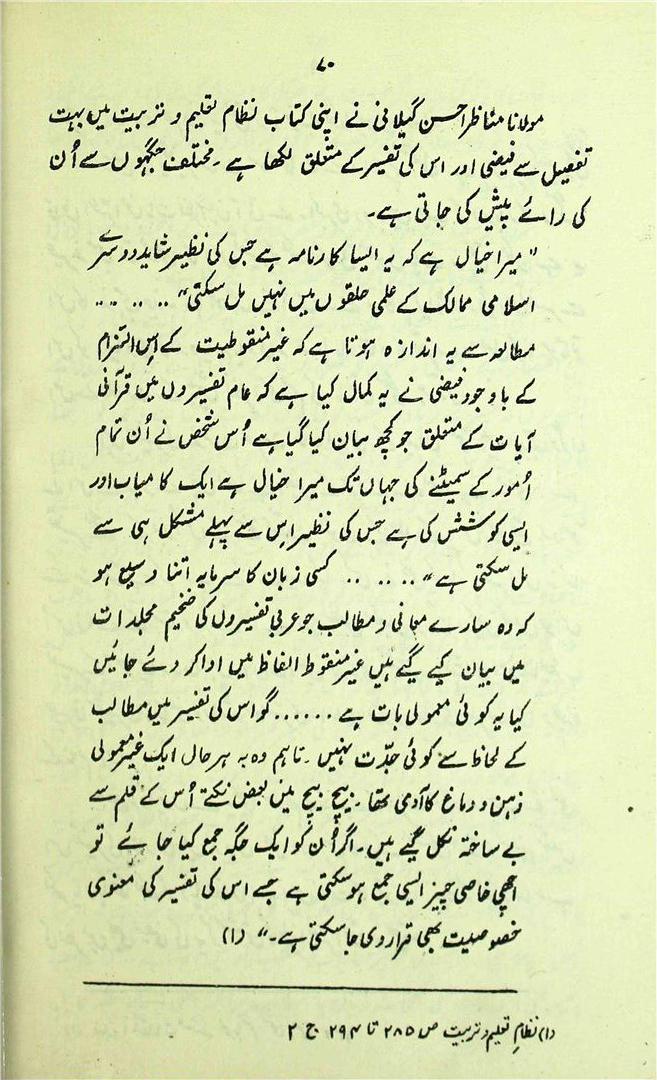 ۷۰
مولانا مناظر احسن گیلانی نے اپنی کتاب نظام تعلیم و تربیت میں بہت
تفصیل سے فیضی اور اس کی تفسیر کے متعلق لکھا ہے۔ مختلف جگہوں سے اُن
کی رائے پیش کی جاتی ہے۔
"میرا خیال ہے کہ یہ ایسا کارنامہ ہے جس کی نظیر شاید دوسرے
اسلامی ممالک کے علمی حلقوں میں نہیں مل سکتی" .. .. .. ..
مطالعہ سے یہ اندازہ ہوتا ہے کہ غیر منقوطیت کے اِس التزام
کے باوجود فیضی نے یہ کمال کیا ہے کہ عام تفسیروں میں قرآنی
آیات کے متعلق جو کچھ بیان کیا گیا ہے اُس شخص نے اُن تمام
اُمور کے سمیٹنے کی جہاں تک میرا خیال ہے ایک کامیاب اور
ایسی کوشش کی ہے جس کی نظیر اِس سے پہلے مشکل ہی سے
مل سکتی ہے" .. .. .. کسی زبان کا سرمایہ اتنا وسیع ہو
کہ وہ سارے معانی و مطالب جو عربی تفسیروں کی ضخیم مجلدات
میں بیان کیے گیے ہیں غیر منقوط الفاظ میں ادا کر دئے جائیں
کیا یہ کوئی معمولی بات ہے ...... گو اس کی تفسیر میں مطالب
کے لحاظ سے کوئی جدّت نہیں۔ تاہم وہ بہ ہر حال ایک غیر معمولی
ذہن و دماغ کا آدمی تھا۔ بیچ بیچ میں بعض نکتے اُس کے قلم سے
بے ساختہ نکل گیے ہیں۔ اگر اُن کو ایک جگہ جمع کیا جائے تو
اچھی خاصی چیز ایسی جمع ہو سکتی ہے جسے اس کی تفسیر کی معنوی
خصوصیت بھی قرار دی جا سکتی ہے۔" (۱)
(۱) نظامِ تعلیم و تربیت ص ۲۸۵ تا ۲۹۴ ج ۲